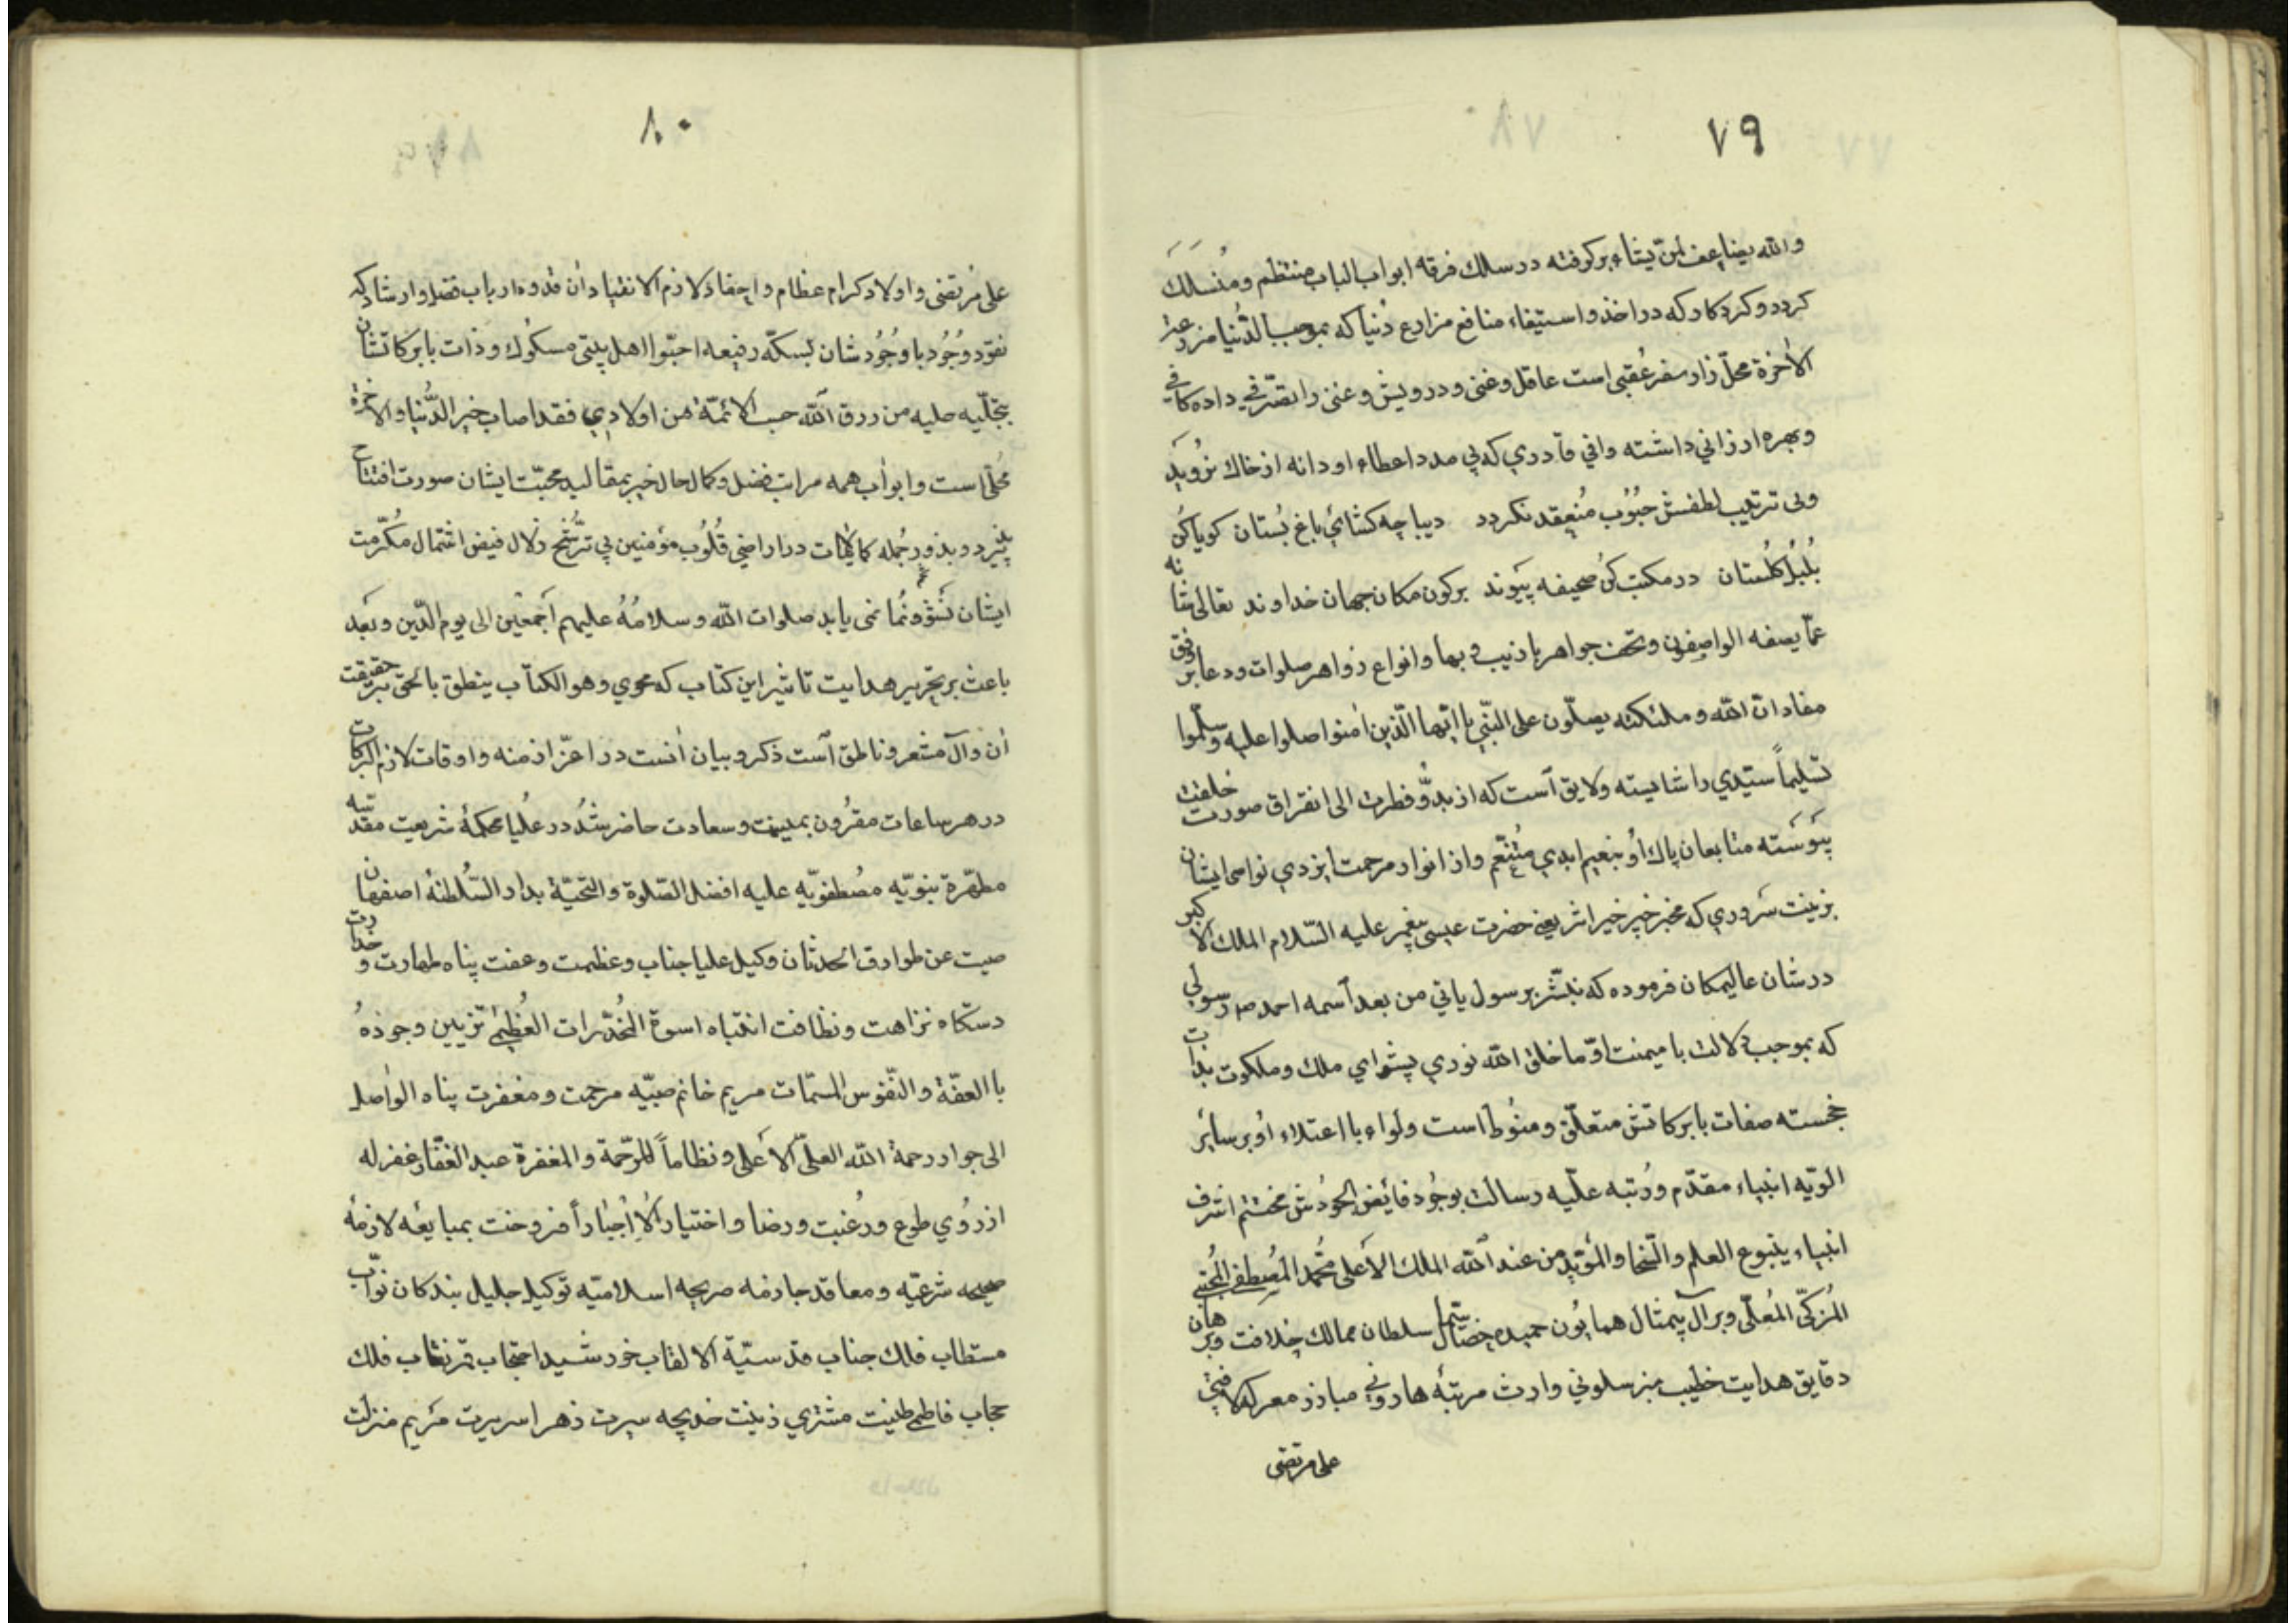 ٧٩
والله یضاعف لمن یشاء برکرفته در سلك فرقه ابواب الباب منتظم ومنسلك
کردد وکردکار که در اخذ واستیفاء منافع مزارع دنیا که بموجب الدنیا مزرعة
الآخرة محلّ زاد سفر عقبی است عاقل وغنی ودرویش وغنی را تصرّفی داده کافی
وبهره ارزانی داشته وافی قادری که بی مدد اعطاء او دانه از خاك نروید
وبی ترتیب لطفش حبوب منعقد نکردد دیباچه کشای باغ بستان کویا کن
بلبل کلستان در مکتب کن صحیفه پیوند برکون مکان جهان خداوند تعالی شانه
عمّا یصفه الواصفون وتحف جواهر با زیب وبها وانواع زواهر صلوات ودعا بر وفق
مفاد ان الله وملئکته یصلّون علی النبّی یا ایّها الّذین امنوا صلوا علیه وسلّموا
تسلیماً سیّدی را شایسته ولایق است که از بدو فطرت الی انقراق صورت خلقت
پیوسته متابعان پاك او بنعیم ابدی متنعّم واز انوار مرحمت ایزدی نواصی ایشان
بزینت سروری که مخبر خبر خیر اثر یعنی حضرت عیسی پیغمبر علیه السّلام الملك الاکبر
در شان عالیمکان فرموده که نبشّر برسول یاتی من بعد اسمه احمد ص رسولی
که بموجب دلالت با میمنت اوّما خلق الله نوری پیشوای ملك وملکوت بذات
خجسته صفات بابرکاتش متعلّق ومنوط است ولواء بااعتلاء او بر سایر
الویه انبیاء مقدّم ورتبه علّیه رسالت بوجود فائض الجودش مختتم اشرف
انبیاء ینبوع العلم والسّخا والمؤیّد من عند الله الملك الاعلی محمّد المصطفی المجتبی
المزکّی المعلّی وبر آل بیمثال همایون حمیده خصال سیّما سلطان ممالك خلافت وبرهان
دقایق هدایت خطیب منبر سلونی وارث مرتبه هارونی مبارز معرکه لافتی
علی مرتضی
٨٠
علی مرتضی واولاد کرام عظام واحفاد لازم الانقیاد ان قدوه ارباب فضل وارشاد که
نقود وجود باوجودشان بسکّه رفیعه احبّوا اهل بیتی مسکوك وذات بابرکاتشان
بتجلّیه حلیه من رزق الله حب الائمّة من اولادی فقد اصاب خیر الدّنیا والاخرة
محلّی است وابواب همه مراتب فضل وکمال حال خیر بمقالید محبّت ایشان صورت افتتاح
پذیرد وبذور جمله کمالات در اراضی قلوب مؤمنین بی ترشّح زلال فیض اشتمال مکرّمت
ایشان نشو ونما نمی یابد صلوات الله وسلامه علیهم اجمعین الی یوم الدّین وبعد
باعث بر تحریر هدایت تاثیر این کتاب که محوی وهو الکتاب ینطق بالحق بر حقیقت
ان وآل مشعر وناطق است ذکر وبیان انست در اعزّ ازمنه واوقات لازم البرکات
در هر ساعات مقرون بمیمنت وسعادت حاضر شد در علیا محکمه شریعت مقدسه
مطهّرة نبویّه مصطفویّه علیه افضل الصّلوة والتحیّة بدار السّلطنه اصفهان
صیت عن طوارق الحدثان وکیل علیا جناب وعظمت وعفت پناه طهارت وخدارت
دستکاه نزاهت ونظافت انتباه اسوة المخدّرات العظمی تزیین وجوده
با العفّة والنّفوس المسمّات مریم خانم صبیّه مرحمت ومغفرت پناه الواصل
الی جوار رحمة الله العلیّ الاعلی ونظاماً للمرّحمة والمغفرة عبد الغفّار غفر له
از روی طوع ورغبت ورضا واختیار لا اجباراً فروخت بمبایعه لازمه
صحیحه شرعیّه ومعاقد جازمه صریحه اسلامیّه توکیل جلیل بندکان نوّاب
مستطاب فلك جناب قدسیّة الالقاب خورشید احتجاب قمر نقاب فلك
حجاب فاطمی طینت مشتری زینت خدیجه سیرت زهرا سریرت مریم منزلت